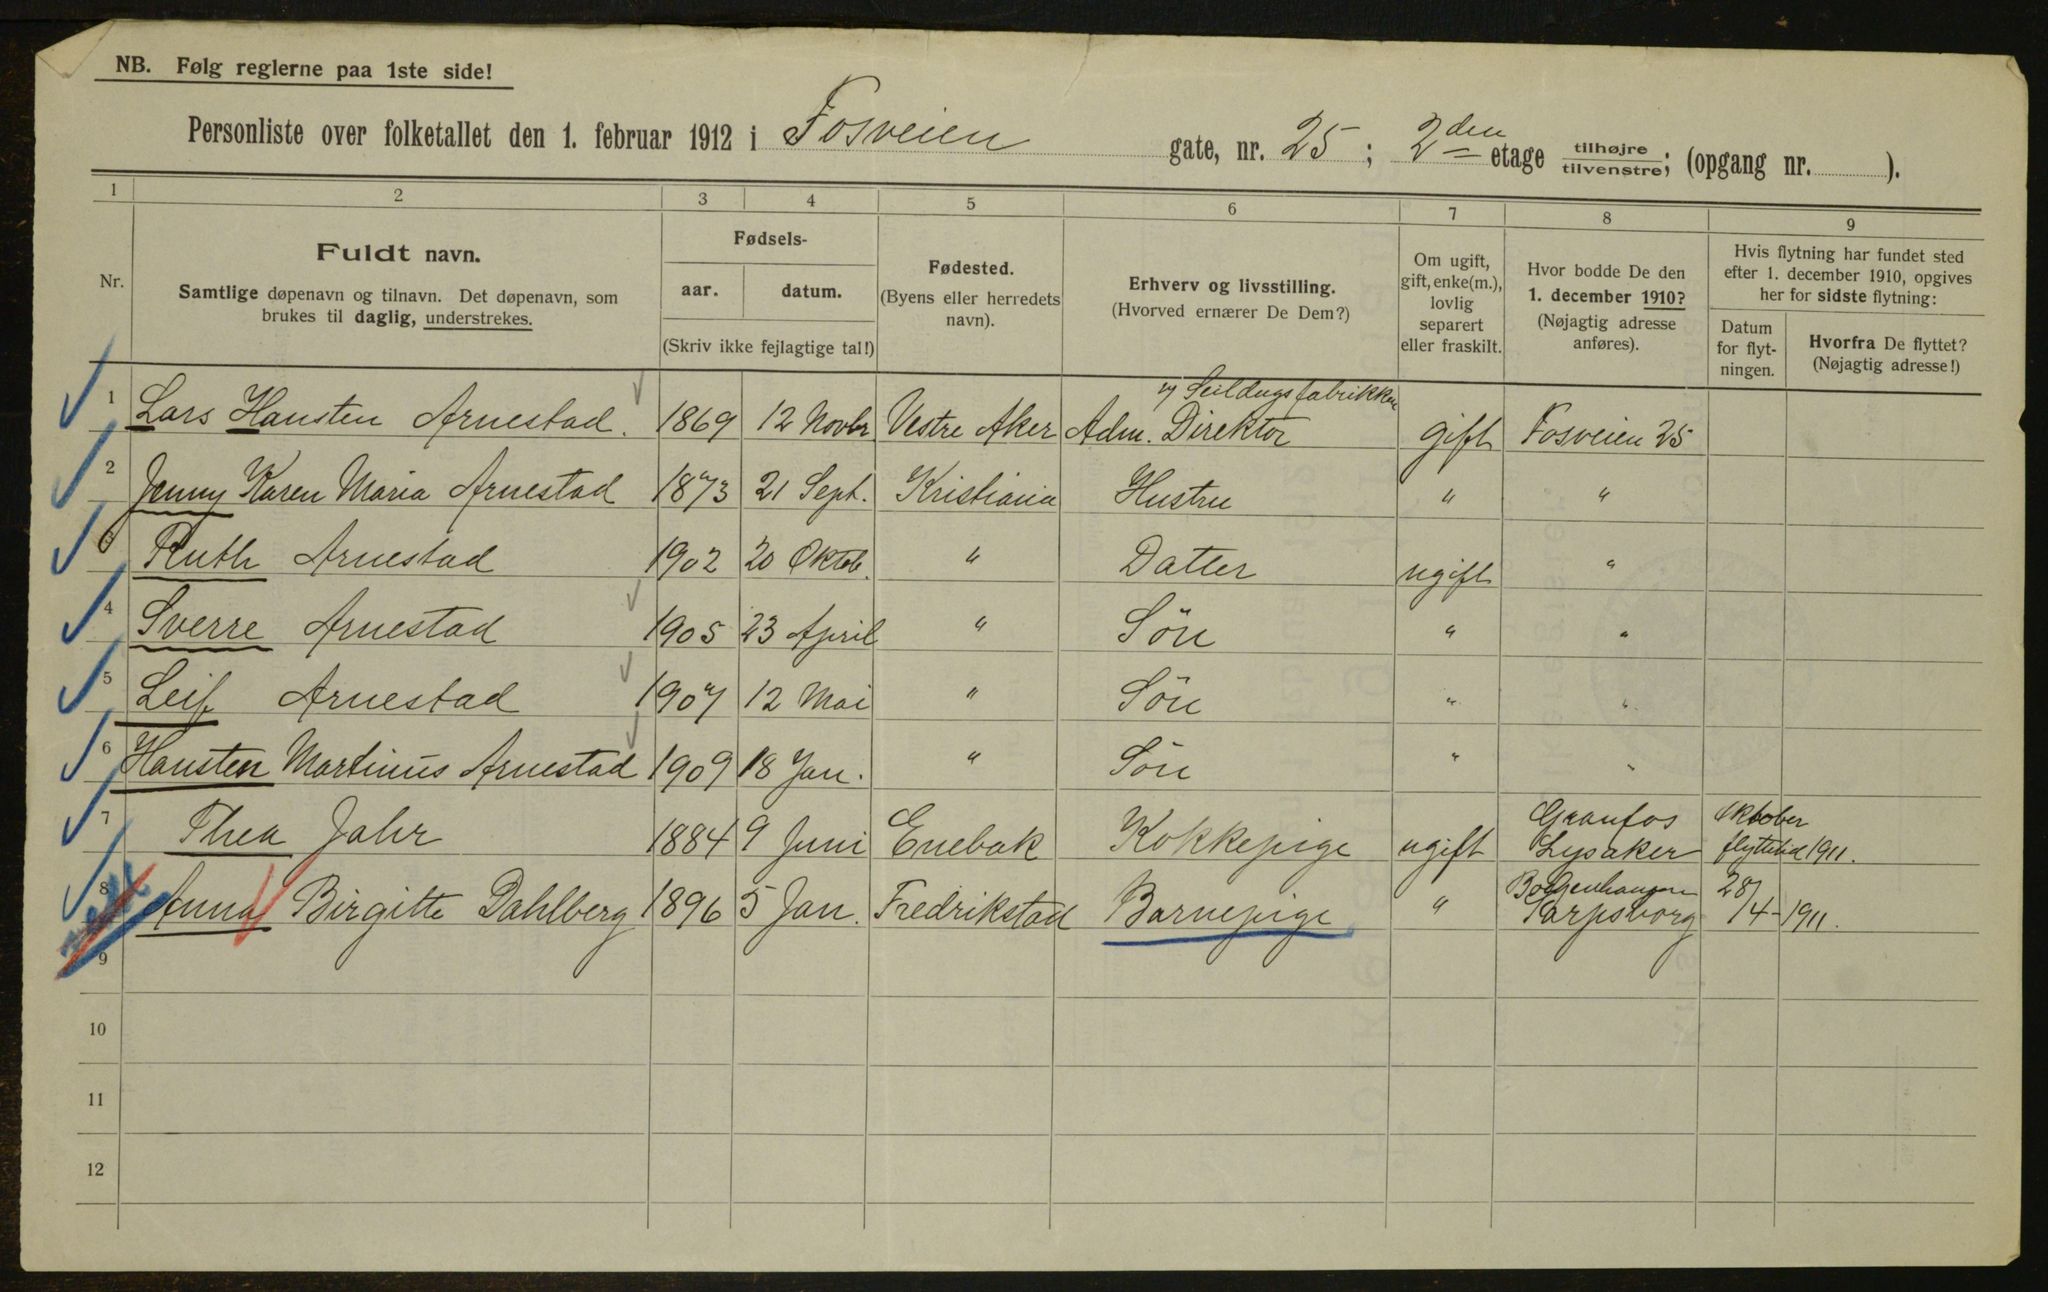 NB. Følg reglerne paa 1ste side!
Personliste over folketallet den 1. februar 1912 i Fosveien gate, nr. 25; 2den etage tilhøjre/tilvenstre; (opgang nr. ).
1 2 3 4 5 6 7 8 9
Nr.
Fuldt navn.
Samtlige døpenavn og tilnavn. Det døpenavn, som
brukes til daglig, understrekes.
Fødsels-
aar. datum.
(Skriv ikke fejlagtige tal!)
Fødested.
(Byens eller herredets
navn).
Erhverv og livsstilling.
(Hvorved ernærer De Dem?)
Om ugift,
gift, enke(m.),
lovlig
separert
eller fraskilt.
Hvor bodde De den
1. december 1910?
(Nøjagtig adresse
anføres).
Hvis flytning har fundet sted
efter 1. december 1910, opgives
her for sidste flytning:
Datum
for flyt-
ningen.
Hvorfra De flyttet?
(Nøjagtig adresse!)
v/ Seildugsfabrikken
1 Lars Hansten Arnestad. 1869 12 Novbr Vestre Aker Adm. Direktör gift Fosveien 25
2 Jenny Karen Maria Arnestad 1873 21 Sept. Kristiania Hustru " "
3 Ruth Arnestad 1902 20 Oktob. " Datter ugift "
4 Sverre Arnestad 1905 23 April " Sön " "
5 Leif Arnestad 1907 12 Mai " Sön " "
6 Hansten Martinius Arnestad 1909 18 Jan. " Sön " "
Granfos Oktober
7 Thea Jahr 1884 9 Juni Enebak Kokkepige ugift Lysaker flyttetid 1911.
8 Anna Birgitte Dahlberg 1896 5 Jan. Fredrikstad Barnepige " Sarpsborg 28/4-1911.
9
10
11
12